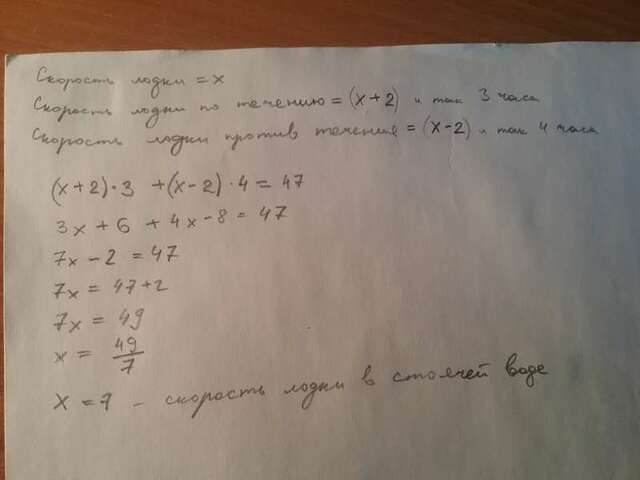 Скорость лодки = x
Скорость лодки по течению = (x+2) и так 3 часа
Скорость лодки против течения = (x-2) и так 4 часа
(x+2)·3 +(x-2)·4 = 47
3x + 6 + 4x - 8 = 47
7x - 2 = 47
7x = 47+2
7x = 49
x = 49/7
x = 7 - скорость лодки в стоячей воде